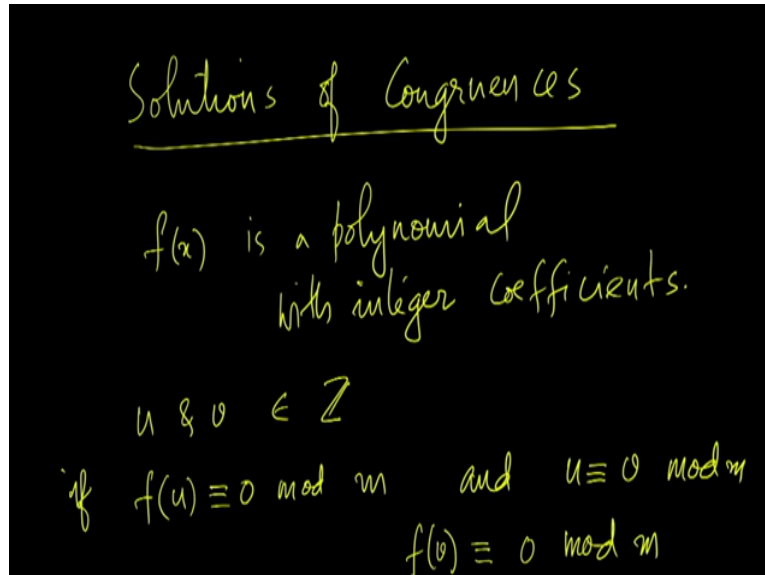 Solutions of Congruences
f(x) is a polynomial
with integer coefficients.
u & v ∈ ℤ
if f(u) ≡ 0 mod m and u ≡ v mod m
f(v) ≡ 0 mod m